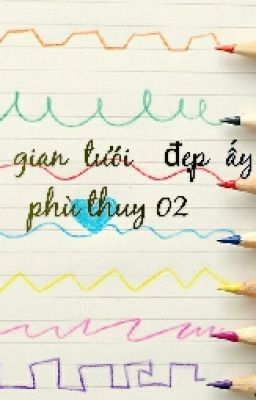 gian tươi đẹp ấy
phù thuy 02